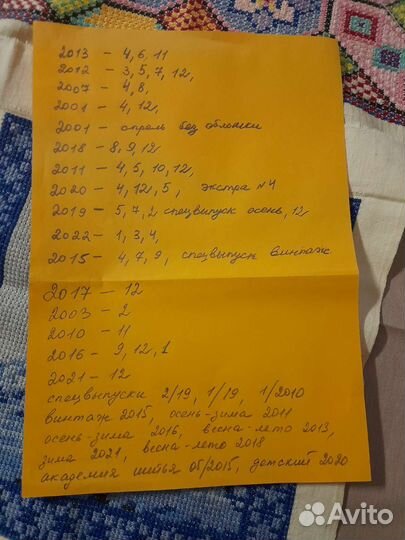 2013 - 4, 6, 11
2012 - 3, 5, 7, 12,
2007 - 4, 8,
2001 - 4, 12,
2001 - апрель без обложки
2018 - 8, 9, 12
2011 - 4, 5, 10, 12,
2020 - 4, 12, 5, экстра №4
2019 - 5, 7, 2 спецвыпуск осень, 12
2022 - 1, 3, 4,
2015 - 4, 7, 9, спецвыпуск винтаж
2017 - 12
2003 - 2
2010 - 11
2016 - 9, 12, 1
2021 - 12
спецвыпуски 2/19, 1/19, 1/2010
винтаж 2015, осень-зима 2011
осень-зима 2016, весна-лето 2013,
зима 2021, весна-лето 2018
академия шитья 05/2015, детский 2020
Avito